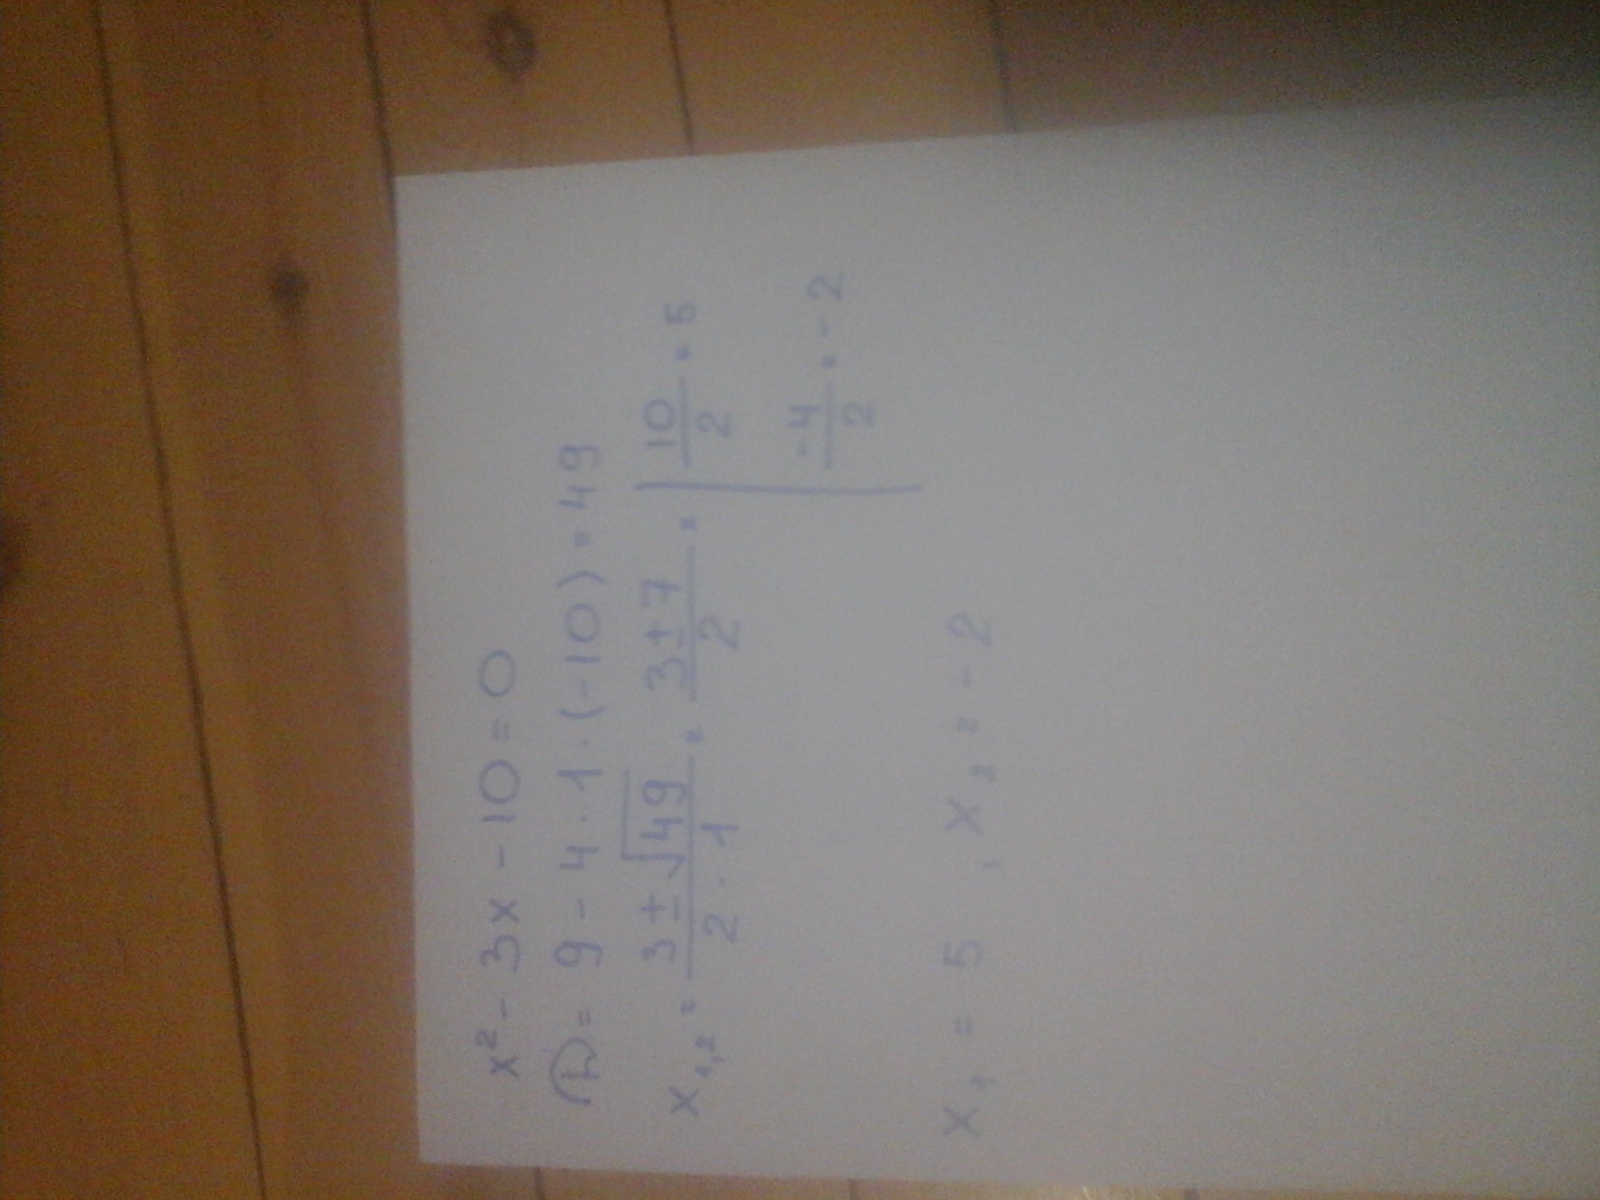 x² - 3x - 10 = 0
D = 9 - 4 · 1 · (-10) = 49
x₁,₂ = (3 ± √49)/(2 · 1) = (3 ± 7)/2 = | 10/2 = 5
-4/2 = -2
x₁ = 5 , x₂ = -2